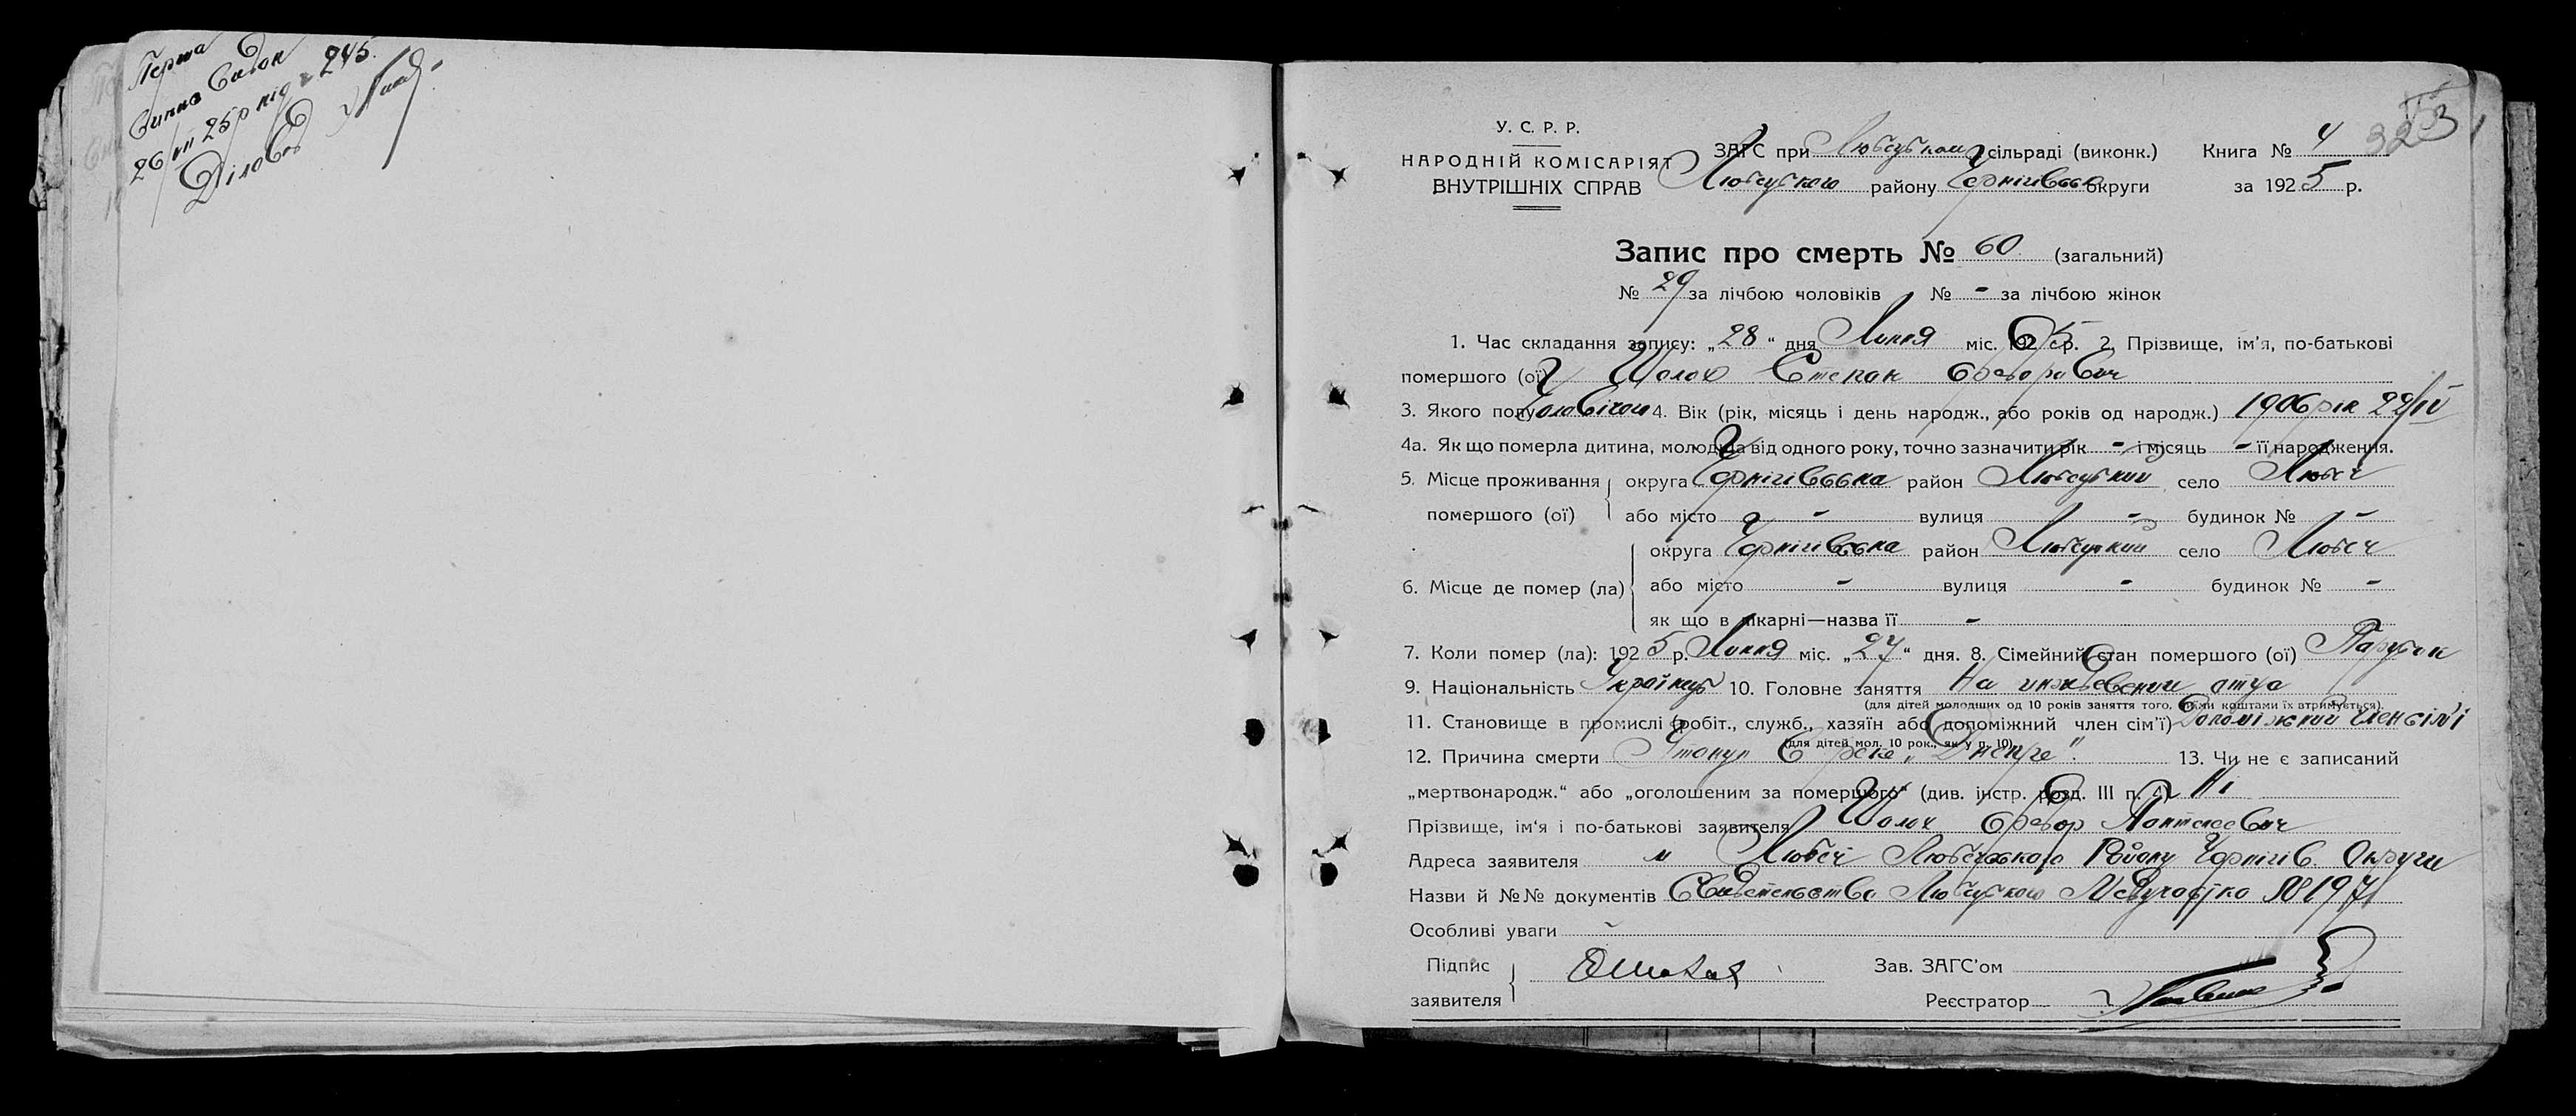 Перша
26/VII 25р під № 245.
Діловод
У. С. Р. Р.
НАРОДНІЙ КОМІСАРІЯТ
ВНУТРІШНІХ СПРАВ
ЗАГС при Любецьком сільраді (виконк.) Книга № 4
323
Любецького району Чернігівської округи за 1925 р.
Запис про смерть № 60 (загальний)
№ 29 за лічбою чоловіків № - за лічбою жінок
1. Час складання запису: „28“ дня Липня міс. 1925 р. 2. Прізвище, ім’я, по-батькові
помершого (ої) Шолох Степан
3. Якого полу Чоловічои 4. Вік (рік, місяць і день народж., або років од народж.) 1906 рік 22/IV
4а. Як що померла дитина, молодша від одного року, точно зазначити рік - і місяць - її народження.
5. Місце проживання округа Чернігівська район Любецький село Любеч
помершого (ої) або місто - вулиця - будинок № -
округа Чернігівська район Любецький село Любеч
6. Місце де помер (ла) або місто - вулиця - будинок № -
як що в лікарні—назва її -
7. Коли помер (ла): 1925 р. Липня міс. „27“ дня. 8. Сімейний стан помершого (ої) Парубок
9. Національність Українець 10. Головне заняття На иждевении отца
(для дітей молодших од 10 років заняття того, чиїми коштами їх втримується).
11. Становище в промислі (робіт., служб., хазяїн або допоміжний член сім’ї) Допоміжний член сім'ї
(для дітей мол. 10 рок., як у р. 10)
12. Причина смерти Утонул в реке „Днепре". 13. Чи не є записаний
„мертвонародж.“ або „оголошеним за помершого“ (див. інстр. розд. III п. 4) Ні
Прізвище, ім‘я і по-батькові заявителя Шолох Пантелеевич
Адреса заявителя м Любеч Любечского Району Чернігів. Округи
Назви й №№ документів Свидетельство Любецкого Медучастка № 197
Особливі уваги
Підпис
заявителя
Зав. ЗАГС’ом
Реєстратор